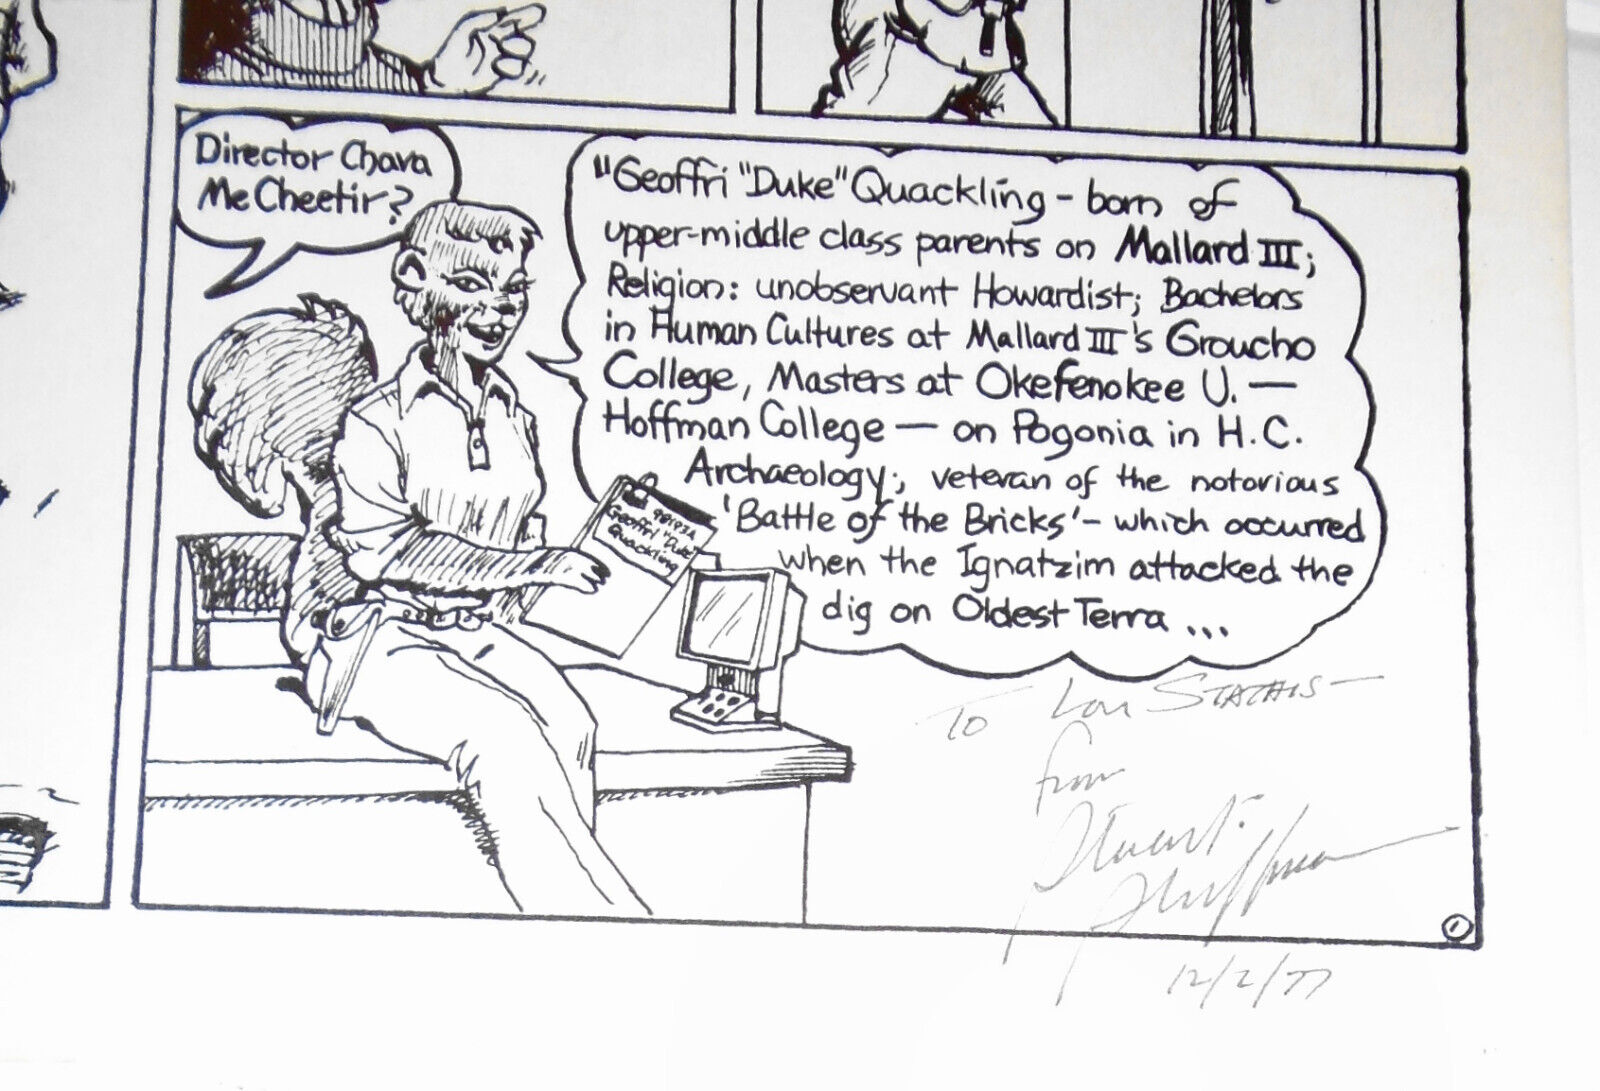 Director Chava
McCheetir?
"Geoffri "Duke" Quackling - born of
upper-middle class parents on Mallard III;
Religion: unobservant Howardist; Bachelors
in Human Cultures at Mallard III's Groucho
College, Masters at Okefenokee U. —
Hoffman College — on Pogonia in H.C.
Archaeology; veteran of the notorious
'Battle of the Bricks' - which occurred
when the Ignatzim attacked the
dig on Oldest Terra ...
98193A
Geoffri "Duke"
Quackling
To Lou Stathis —
from
Stuart
Shiffman
12/2/77
1